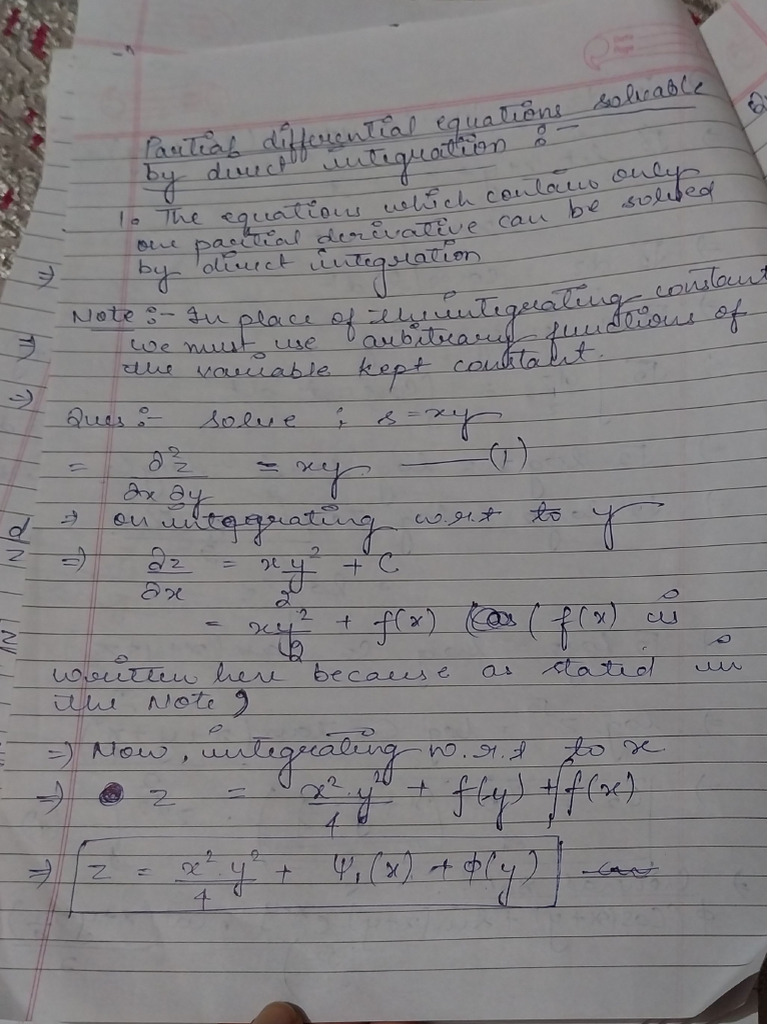 Partial differential equations solveable
by direct integration :-
1. The equations which contains only
one partial derivative can be solved
by direct integration
⇒
Note :- In place of the integrating constant
we must use arbitrary functions of
the variable kept constant.
⇒
⇒
Ques :- solve ; s = xy
= ∂²z/∂x ∂y = xy ——(1)
⇒ on integrating w.r.t to y
⇒ ∂z/∂x = xy²/2 + C
= xy²/2 + f(x) ( f(x) is
written here because as stated in
the Note)
⇒ Now, integrating w.r.t to x
⇒ z = x².y²/4 + f(y) + ∫f(x)
⇒ z = x².y²/4 + Ψ₁(x) + Φ(y)